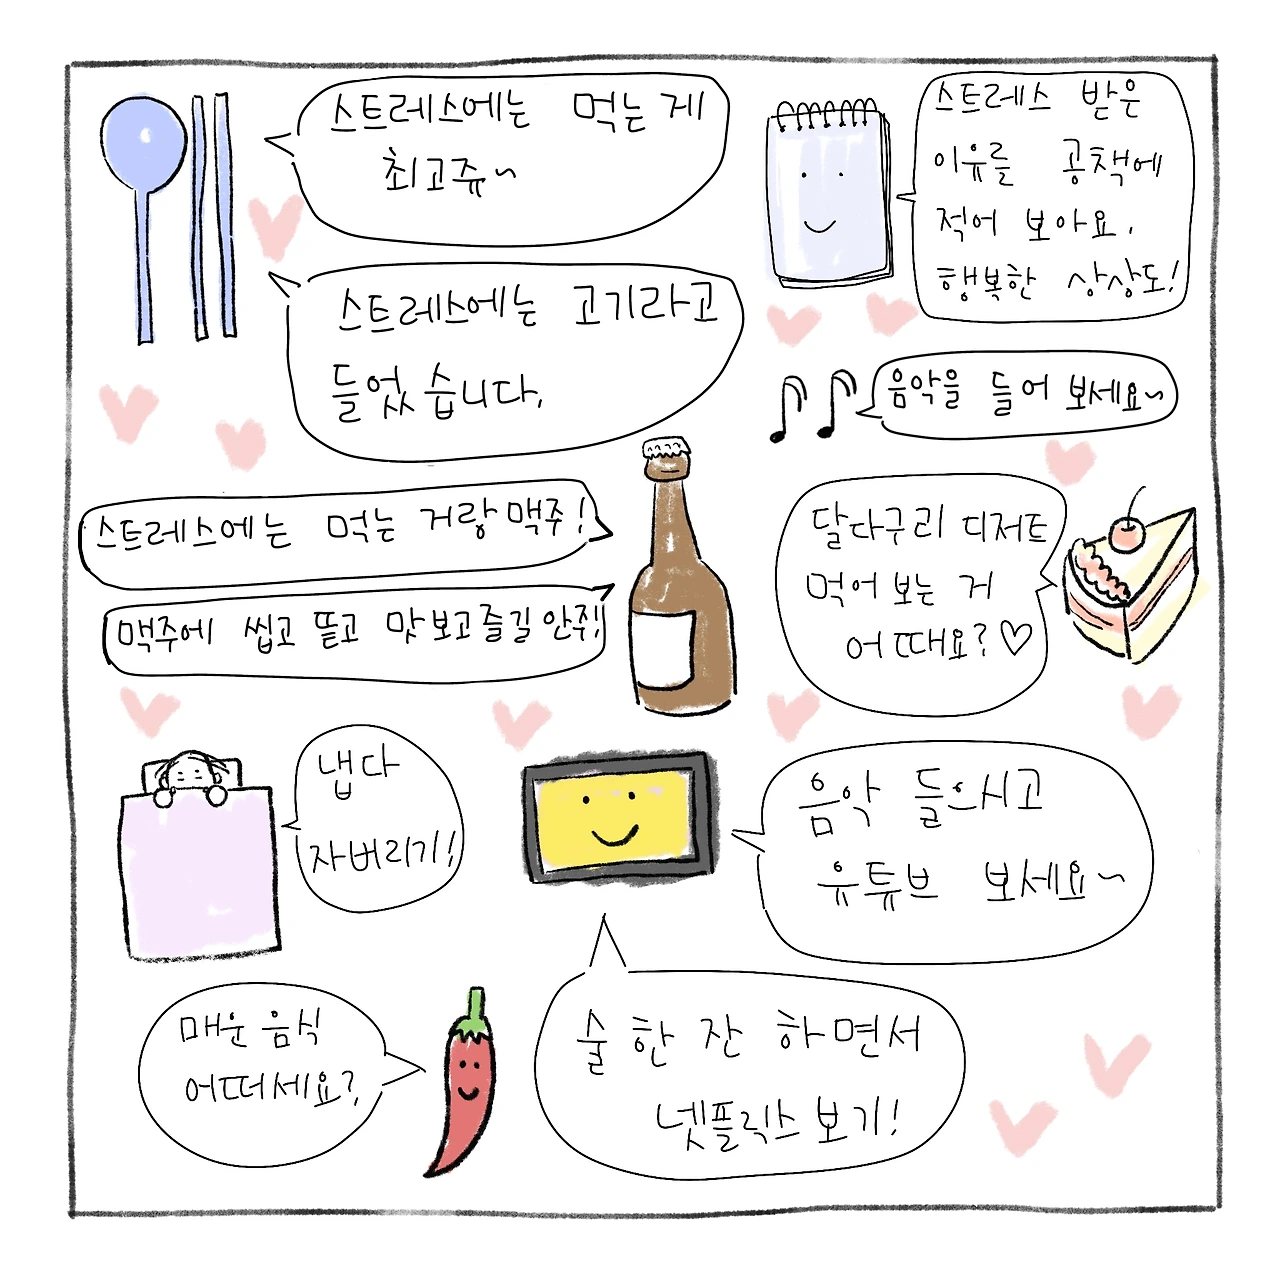 스트레스에는 먹는 게
최고쥬~
스트레스 받은
이유를 공책에
적어 보아요.
행복한 상상도!
스트레스에는 고기라고
들었습니다.
음악을 들어 보세요~
스트레스에는 먹는 거랑 맥주!
맥주에 씹고 뜯고 맛보고 즐길 안주!
달다구리 디저트
먹어 보는 거
어때요?♡
냅다
자버리기!
음악 들으시고
유튜브 보세요~
매운 음식
어떠세요?
술 한 잔 하면서
넷플릭스 보기!